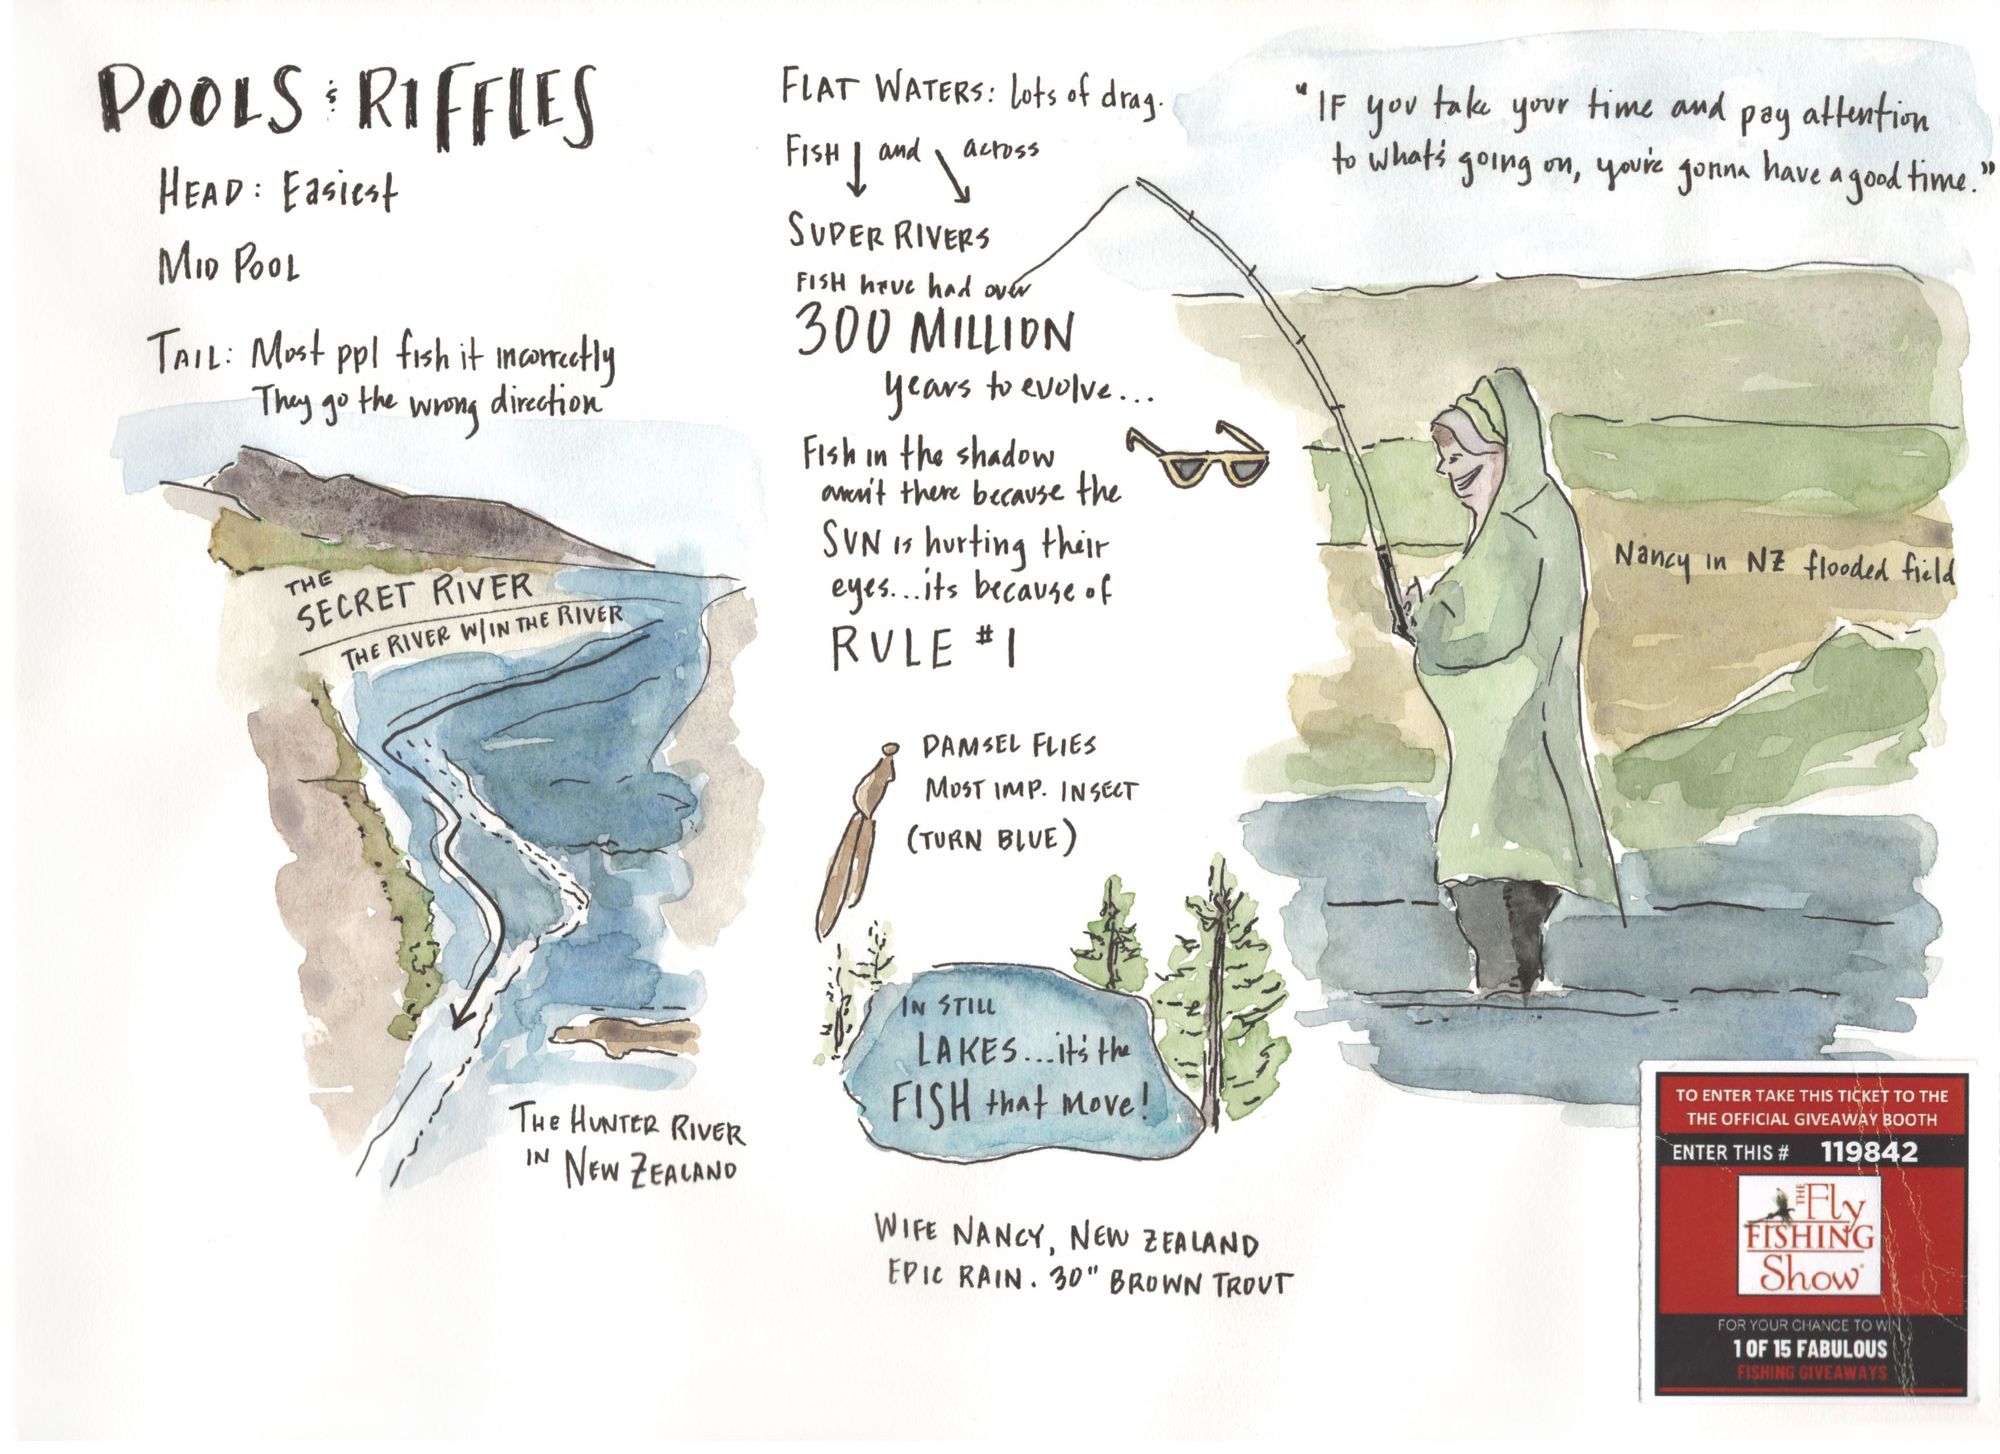 POOLS & RIFFLES
HEAD: Easiest
MID POOL
TAIL: Most ppl fish it incorrectly
They go the wrong direction
THE
SECRET RIVER
THE RIVER W/IN THE RIVER
THE HUNTER RIVER
IN NEW ZEALAND
FLAT WATERS: lots of drag.
FISH ↓ and ↘ across
SUPER RIVERS
FISH have had over
300 MILLION
years to evolve...
Fish in the shadow
aren't there because the
SUN is hurting their
eyes...its because of
RULE #1
DAMSEL FLIES
MOST IMP. INSECT
(TURN BLUE)
IN STILL
LAKES...it's the
FISH that move!
WIFE NANCY, NEW ZEALAND
EPIC RAIN. 30" BROWN TROUT
"IF you take your time and pay attention
to what's going on, you're gonna have a good time."
Nancy in NZ flooded field
TO ENTER TAKE THIS TICKET TO THE
THE OFFICIAL GIVEAWAY BOOTH
ENTER THIS # 119842
THE Fly
FISHING
Show
FOR YOUR CHANCE TO WIN
1 OF 15 FABULOUS
FISHING GIVEAWAYS